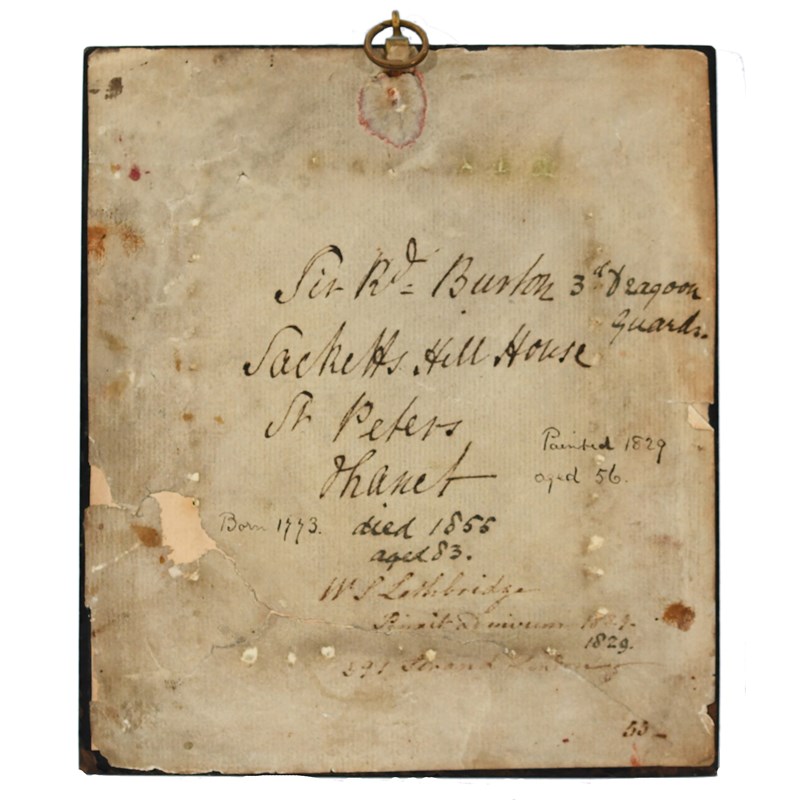 Sir Rd= Burton 3d Dragoon
Guards.
Sacketts Hill House
St Peters
Thanet
Painted 1829
aged 56.
Born 1773. died 1856
aged 83.
W S Lethbridge
Pinxit
1829.
391 Strand London
53